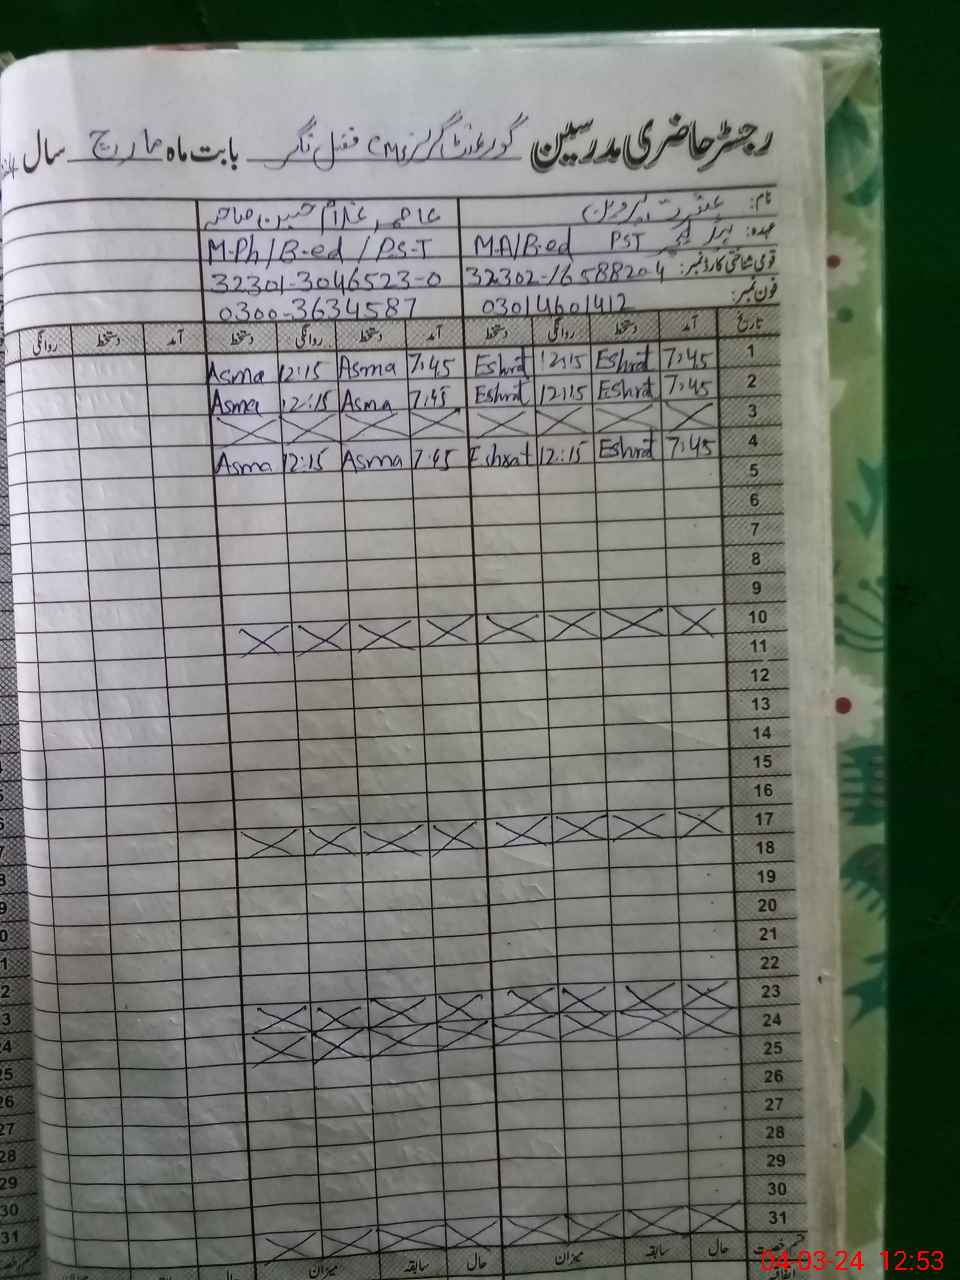 رجسٹر حاضری مدرسین گورنمنٹ گرلز CMS فضل نگر بابت ماہ مارچ سال
نام: عشرت پروین عاصمہ غلام حسین صاحبہ
عہدہ: PST M.A/B.ed M.Ph/B-ed/PS-T
قومی شناختی کارڈ نمبر: 32302-16588204 32301-3046523-0
فون نمبر: 03014601412 0300-3634587
تاریخ آمد دستخط روانگی دستخط آمد دستخط روانگی دستخط آمد دستخط روانگی
1 7:45 Eshrat 12:15 Eshrat 7:45 Asma 12:15 Asma
2 7:45 Eshrat 12:15 Eshrat 7:45 Asma 12:15 Asma
3
4 7:45 Eshrat 12:15 Eshrat 7:45 Asma 12:15 Asma
5
6
7
8
9
10
11
12
13
14
15
16
17
18
19
20
21
22
23
24
25
26
27
28
29
30
31
قسم رخصت حال سابقہ میزان حال سابقہ میزان حال
04-03-24 12:53